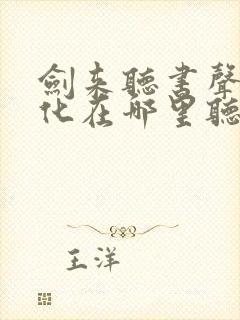 劍来聽書聲
化在哪里聽
王洋